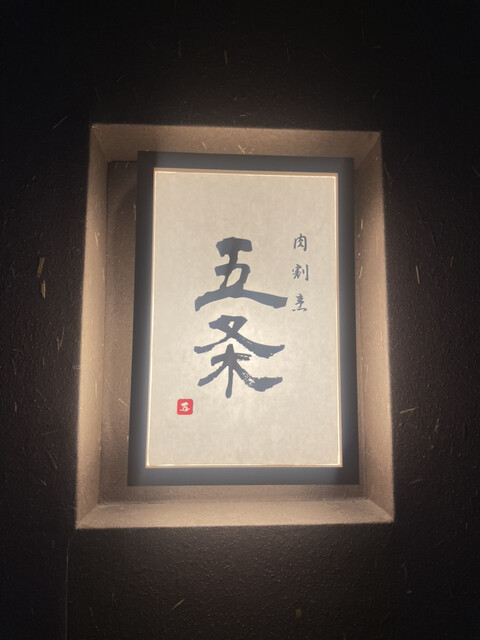 肉割烹
五条